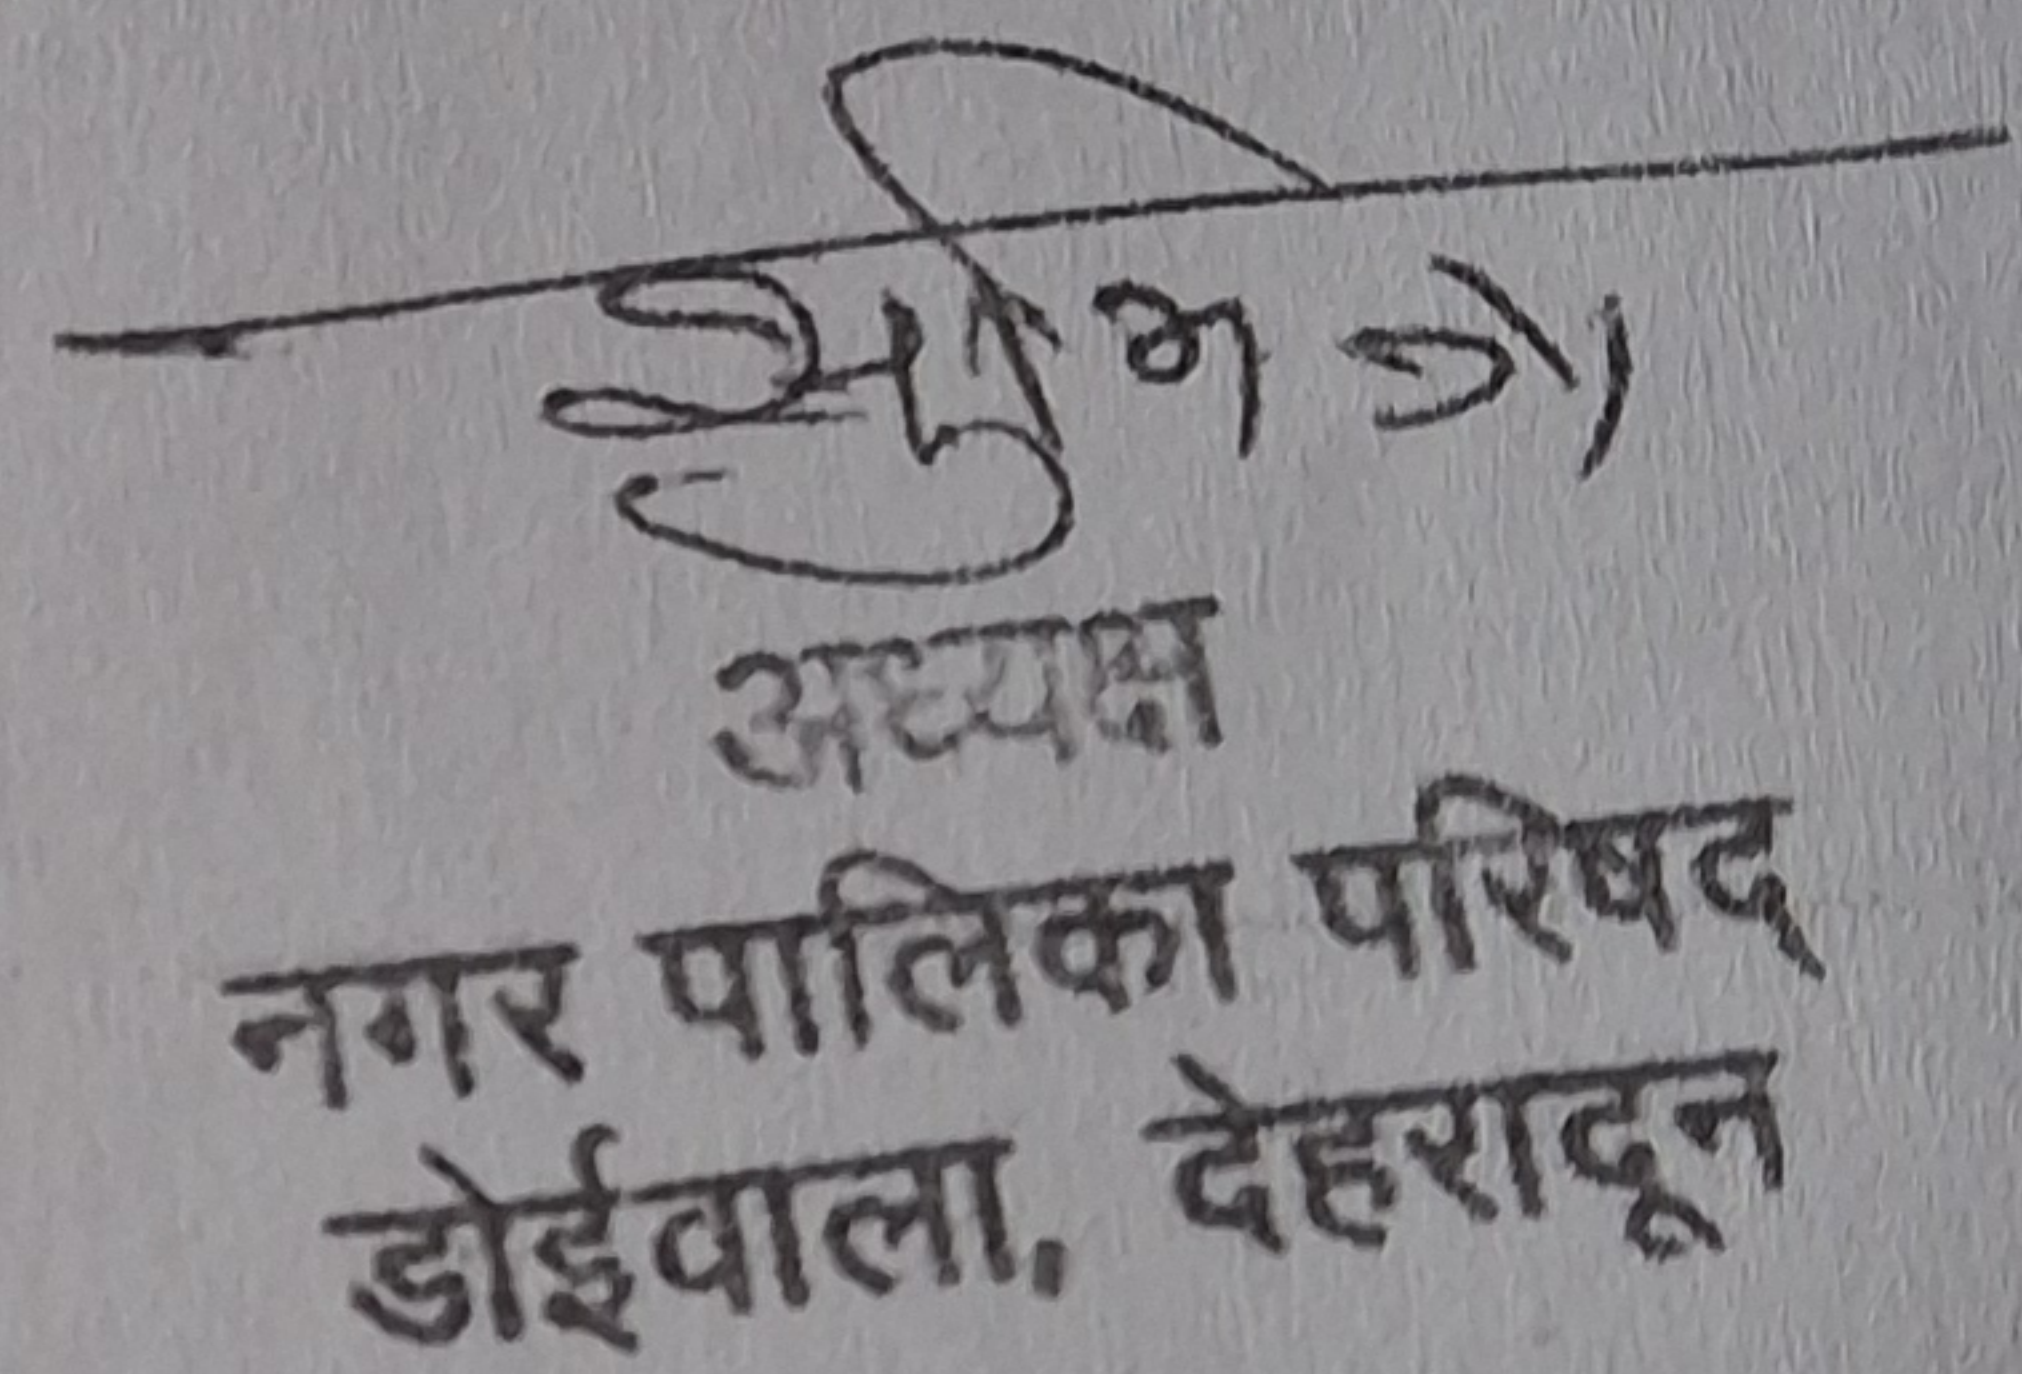 अध्यक्ष
नगर पालिका परिषद्
डोईवाला, देहरादून